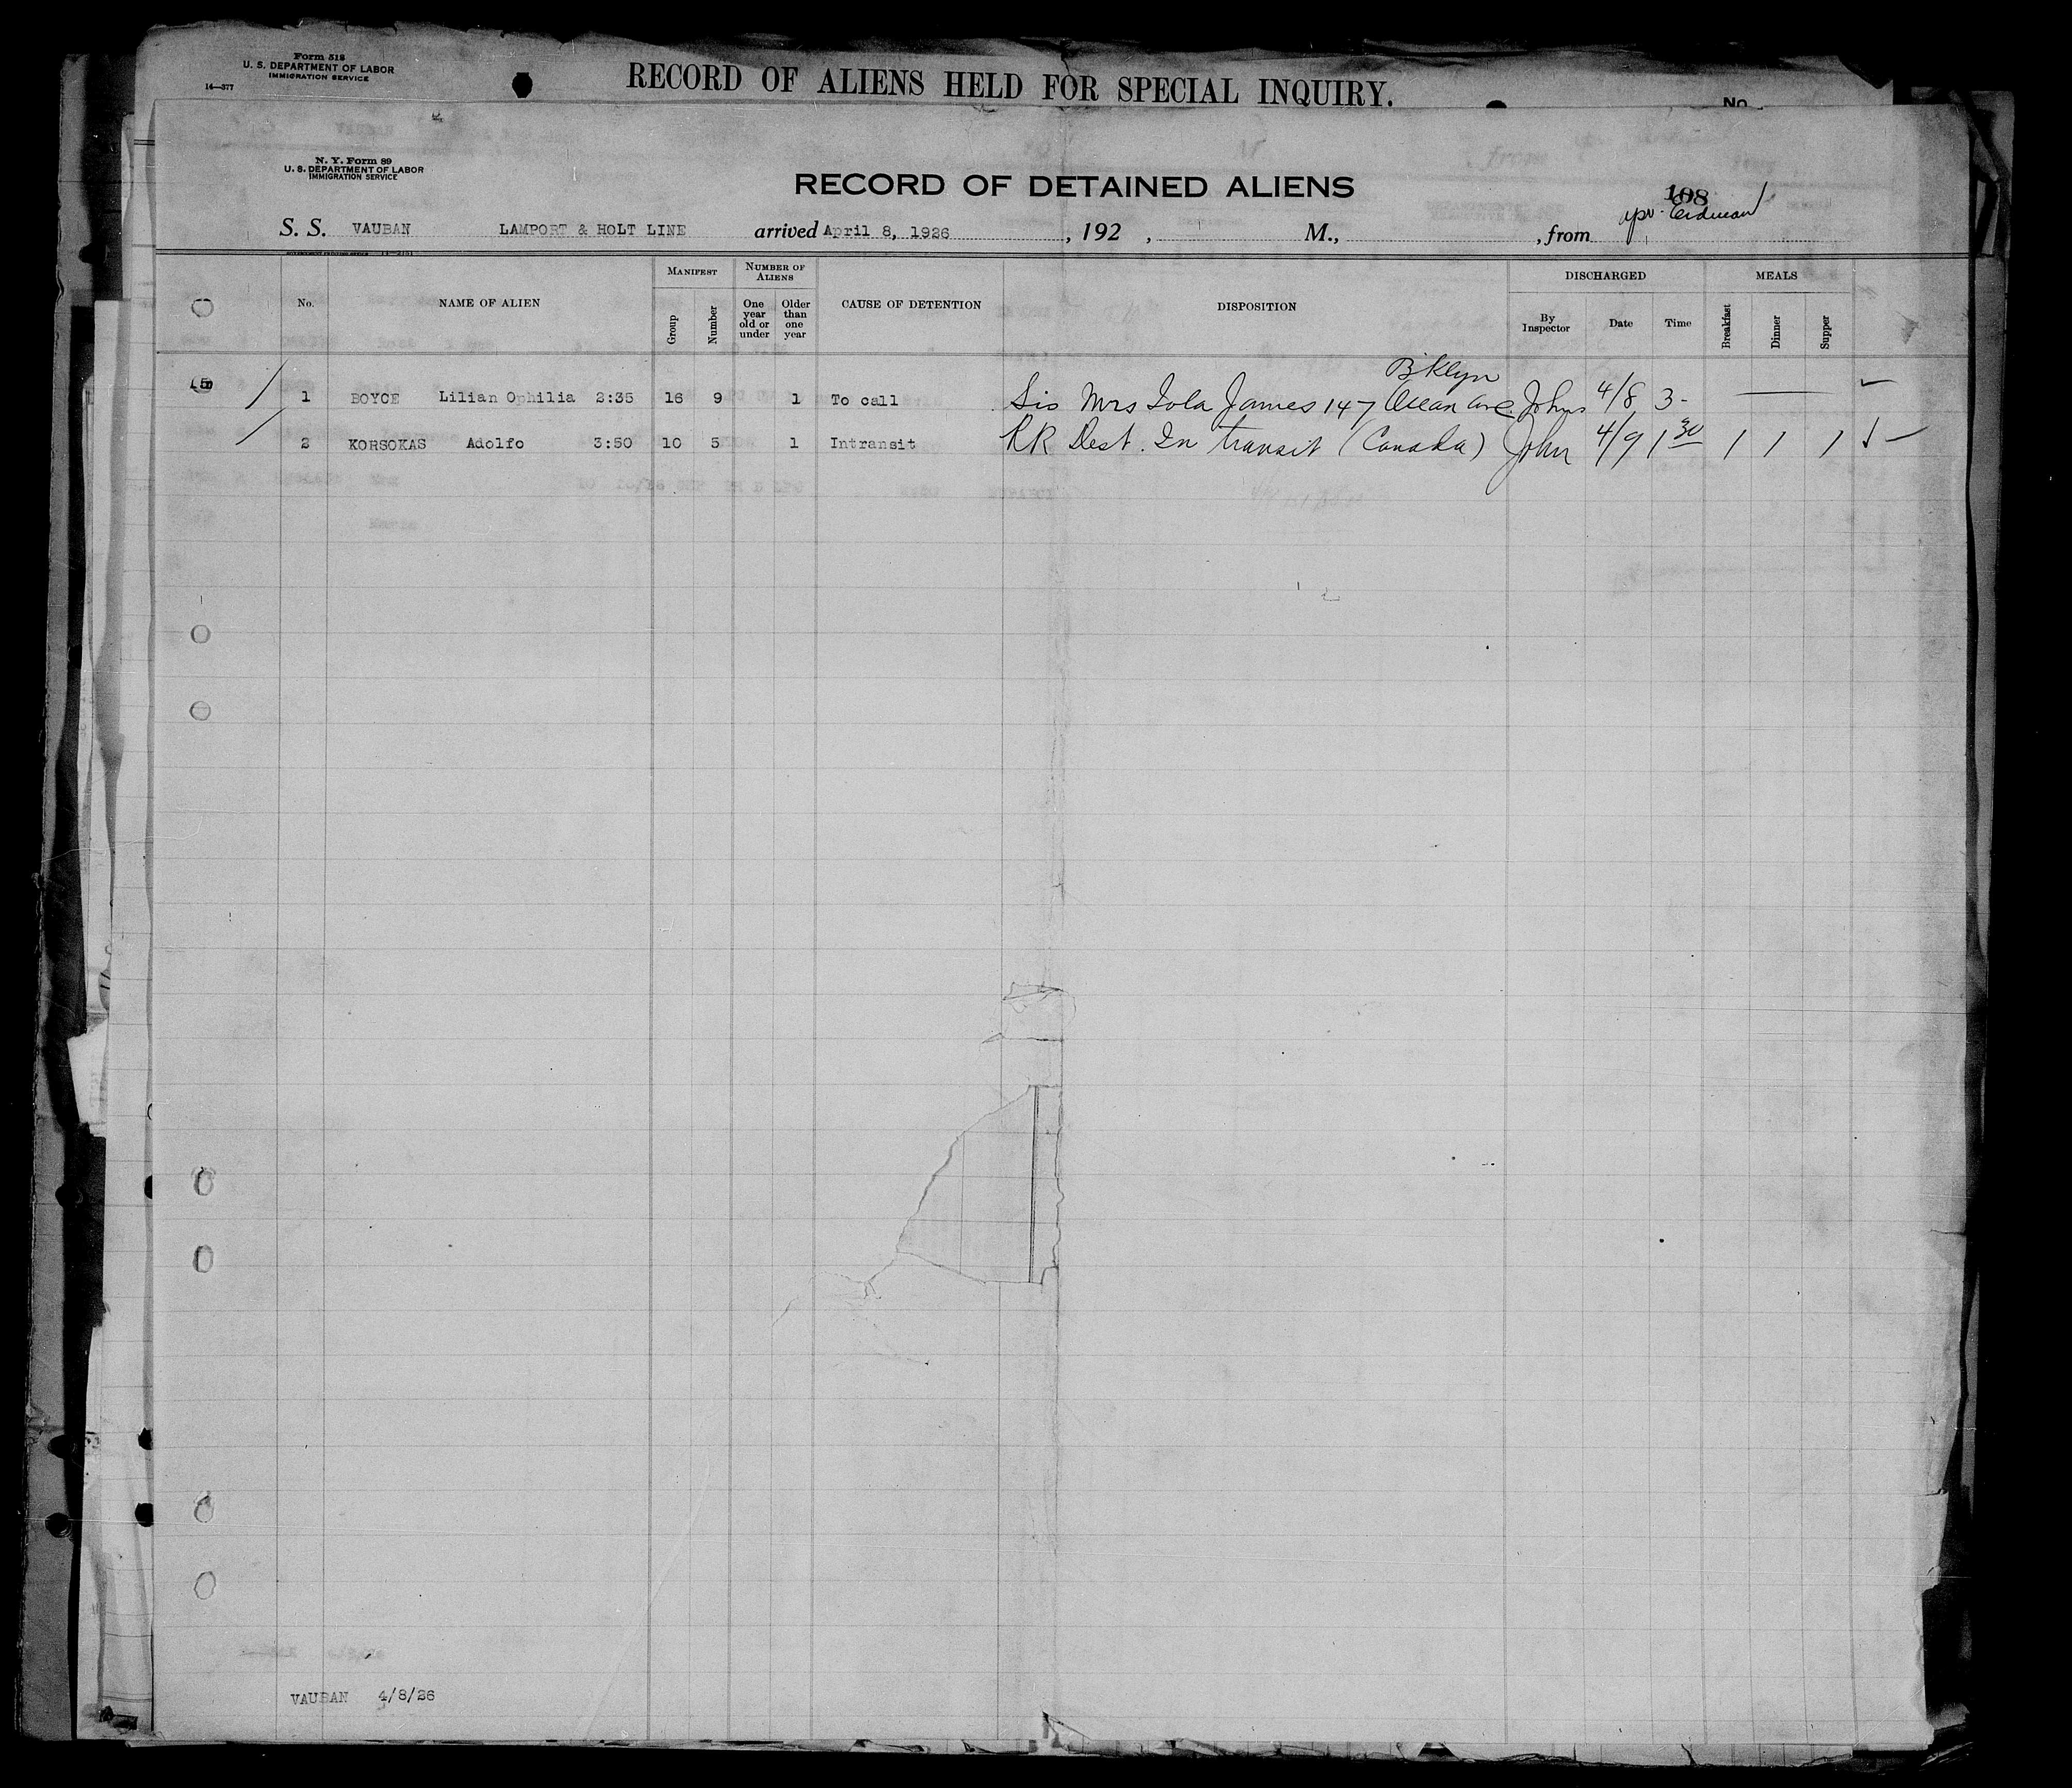 Form 518
U. S. DEPARTMENT OF LABOR
IMMIGRATION SERVICE
14—377
RECORD OF ALIENS HELD FOR SPECIAL INQUIRY.
No.
N. Y. Form 89
U. S. DEPARTMENT OF LABOR
IMMIGRATION SERVICE
RECORD OF DETAINED ALIENS
108
S. S. VAUBAN LAMPORT & HOLT LINE arrived April 8, 1926, 192 , M., , from
No. NAME OF ALIEN MANIFEST Group Number NUMBER OF ALIENS One year old or under Older than one year CAUSE OF DETENTION DISPOSITION DISCHARGED By Inspector Date Time MEALS Breakfast Dinner Supper
B'klyn
1 BOYCE Lilian Ophilia 2:35 16 9 1 To call Sis Mrs Iola James 147 Ocean ave. Johns 4/8 3-
2 KORSOKAS Adolfo 3:50 10 5 1 Intransit RR Dest. In transit (Canada) John 4/9 1 30 1 1 1
VAUBAN 4/8/26